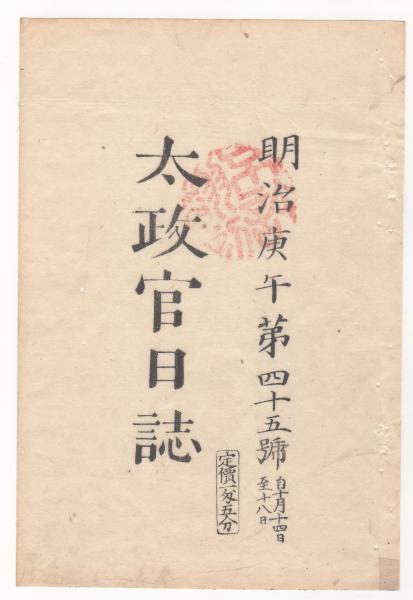 明治庚午第四十五號
自十月十四日
至十八日
太政官日誌
定價一匁五分